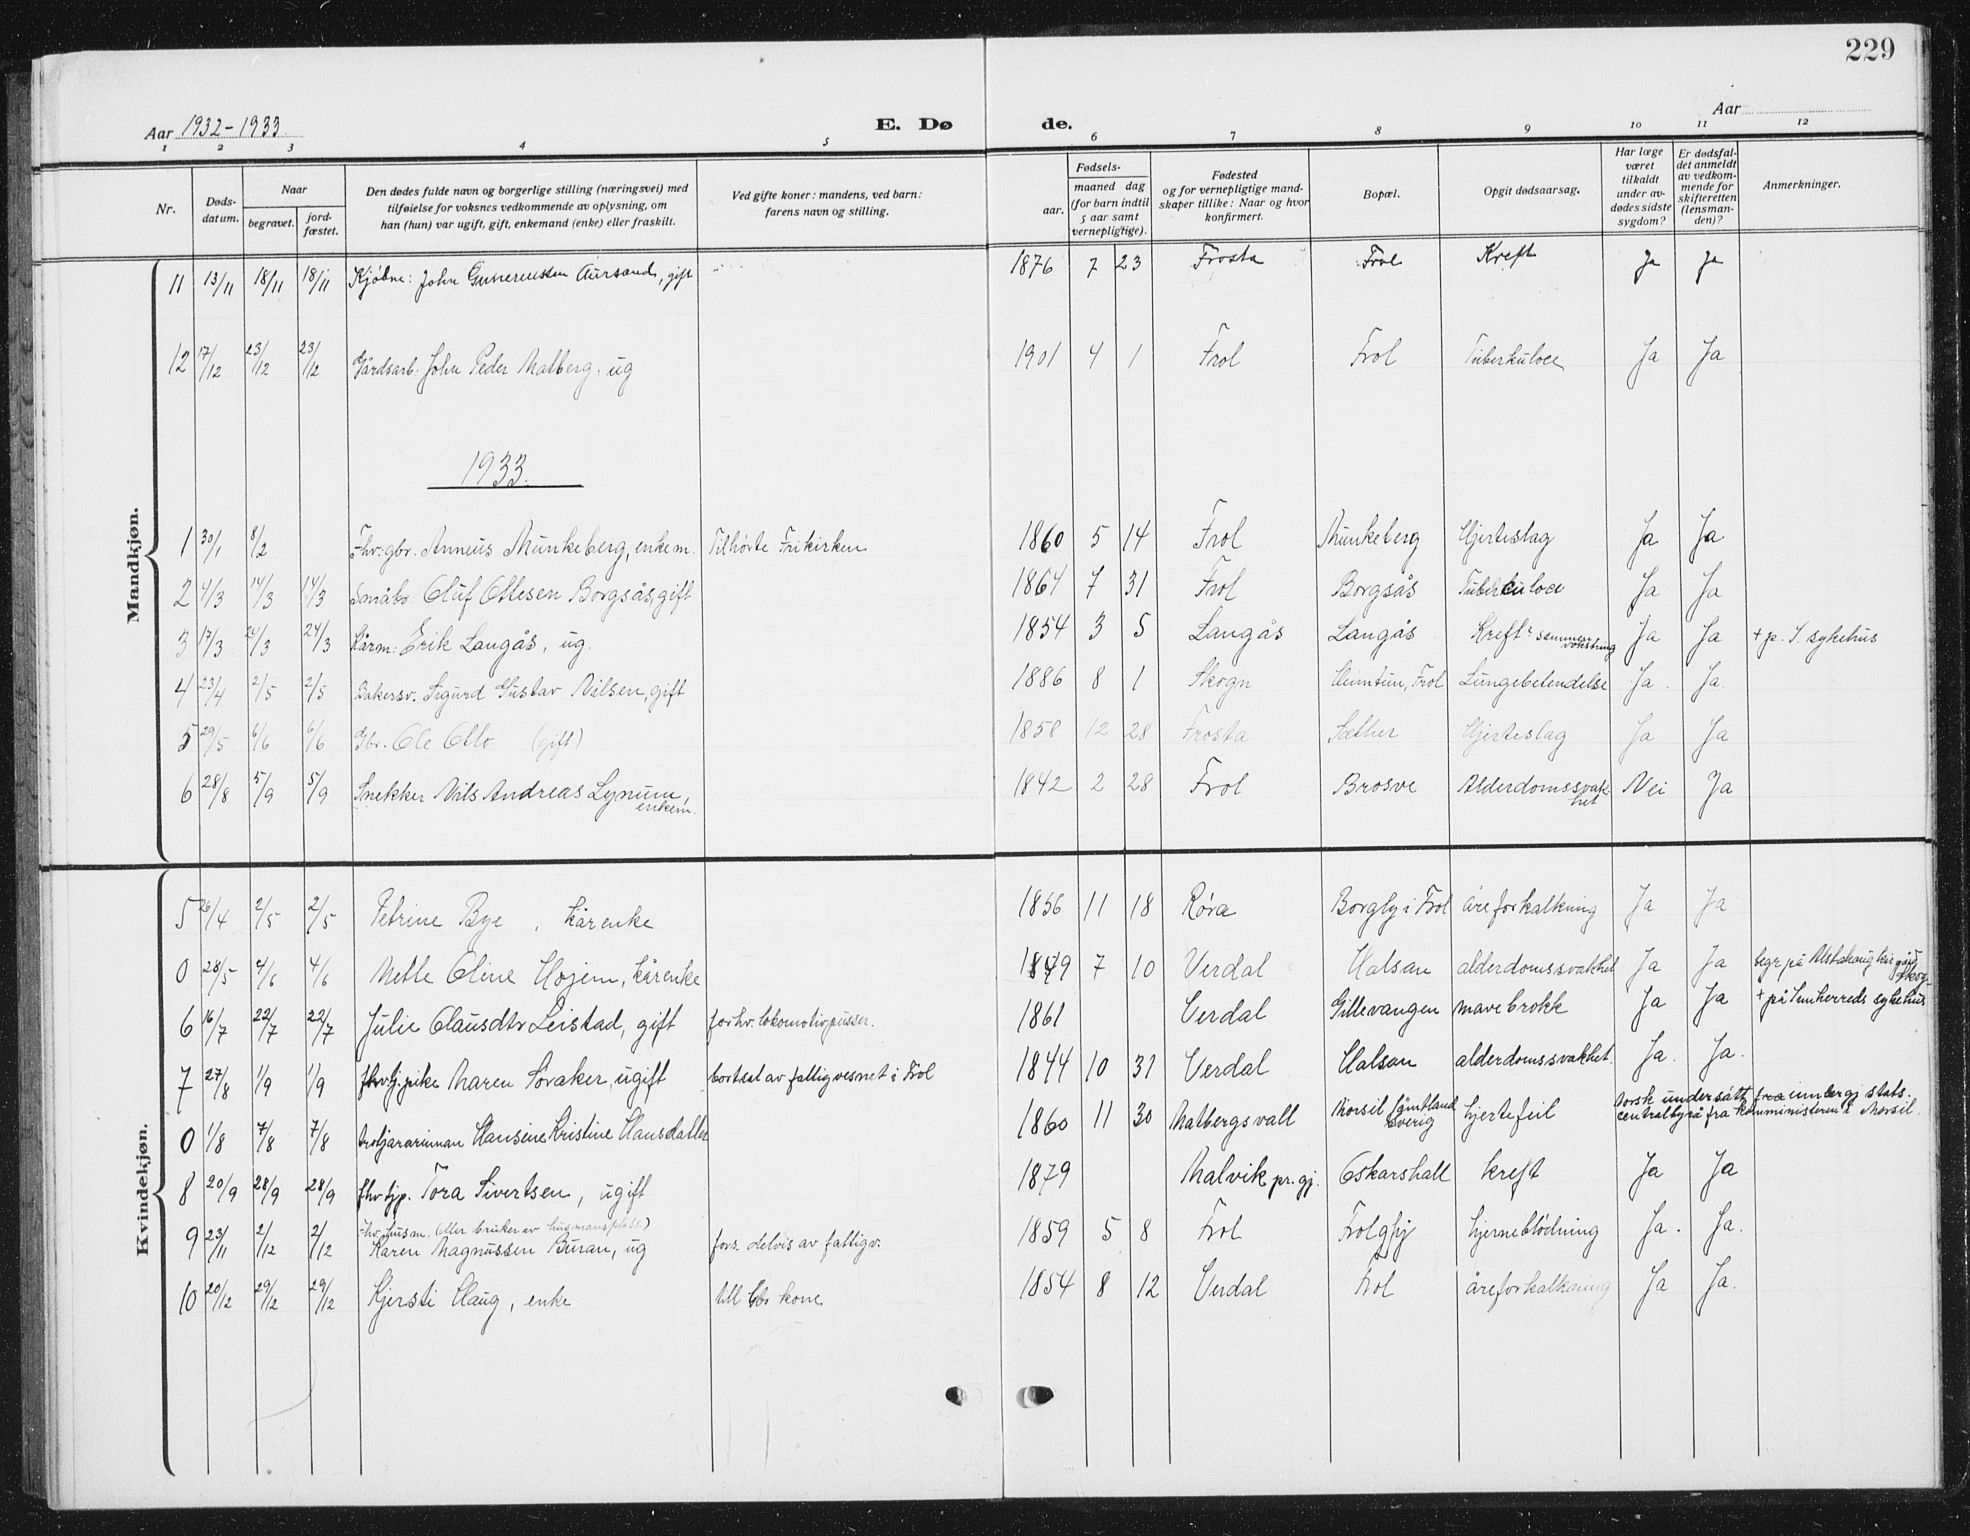 229
Aar 1932-1933.
E. Dø
de.
Aar
1 2 3 4 5 6 7 8 9 10 11 12
Nr.
Døds-
datum.
Naar
begravet.
jord-
fæstet.
Den dødes fulde navn og borgerlige stilling (næringsvei) med
tilføielse for voksnes vedkommende av oplysning, om
han (hun) var ugift, gift, enkemand (enke) eller fraskilt.
Ved gifte koner: mandens, ved barn:
farens navn og stilling.
Fødsels-
aar.
maaned dag
(for barn indtil
5 aar samt
vernepligtige).
Fødested
og for vernepligtige mand-
skaper tillike: Naar og hvor
konfirmert.
Bopæl.
Opgit dødsaarsag.
Har læge
været
tilkaldt
under av-
dødes sidste
sygdom?
Er dødsfal-
det anmeldt
av vedkom-
mende for
skifteretten
(lensman-
den)?
Anmerkninger.
Mandkjøn.
11 13/11 18/11 18/11 Kjøbm: John Gunerensen Aursand, gift 1876 7 23 Frosta Frol Kreft Ja Ja
12 17/12 23/12 23/12 Gårdsarb. John Peder Matberg, ug 1901 4 1 Frol Frol Tuberkulose Ja Ja
1933.
1 30/1 8/2 Fhv. gbr. Anneus Munkeberg, enkem. Tilhörte Frikirken 1860 5 14 Frol Munkeberg Hjerteslag Ja Ja
2 4/3 14/3 14/3 Småbr: Oluf Ottesen Borgsås, gift 1864 7 31 Frol Borgsås Tuberkulose Ja Ja
3 17/3 24/3 24/3 Kårm: Erik Langås, ug. 1854 3 5 Langås Langås Kreft Ja Ja + p. I. sykehus
4 23/4 2/5 2/5 Bakersv. Sigurd Gustav Nilsen, gift 1886 8 1 Skogn Heimtun, Frol Lungebetendelse Ja. Ja.
5 29/5 6/6 6/6 Gbr. Ole Otto (gift) 1858 12 28 Frosta Sæther Hjerteslag Ja Ja
6 28/8 5/9 5/9 Snekker Nils Andreas Lynum, enkem. 1842 2 28 Frol Brosve Alderdomssvakhet Nei Ja
Kvindekjøn.
5 26/4 2/5 2/5 Petrine Bye, kårenke 1856 11 18 Röra Borgly i Frol åreforkalkning Ja Ja
0 28/5 4/6 4/6 Mette Oline Hojem, kårenke 1849 7 10 Verdal Halsan alderdomssvakhet Ja Ja begr på Alstahaug kirkegård Skogn
6 16/7 22/7 22/7 Julie Clausdtr Leistad, gift forhv. lokomotivpusser. 1861 Verdal Gillevangen mavebrokk Ja Ja + på Innherreds sykehus
7 27/8 1/9 1/9 fhv tj. pike Maren Söraker, ugift bortsat av fattigvesnet i Frol 1844 10 31 Verdal Halsan alderdomssvakhet. Ja. Ja.
0 1/8 7/8 7/8 Hansine Kristine Hansdatter 1860 11 30 Matbergsvall Morsil Jämtland Sverig hjertefeil Norsk undersått fra innberg stats.
centralbyrå fra komministeren i Morsil.
8 20/9 28/9 28/9 fhv tjp. Tora Sivertsen, ugift 1879 Malvik pr. gj. Oskarshall kreft Ja Ja
fhv. husm. (eller bruker av husmansplass)
9 23/11 2/12 2/12 Karen Magnussen Buran, ug fors. delvis av fattigv. 1859 5 8 Frol Frolghj hjerneblödning Ja. Ja.
10 20/12 29/12 29/12 Kjersti Haug, enke Gbr kone 1854 8 12 Verdal Frol åreforkalkning Ja Ja.